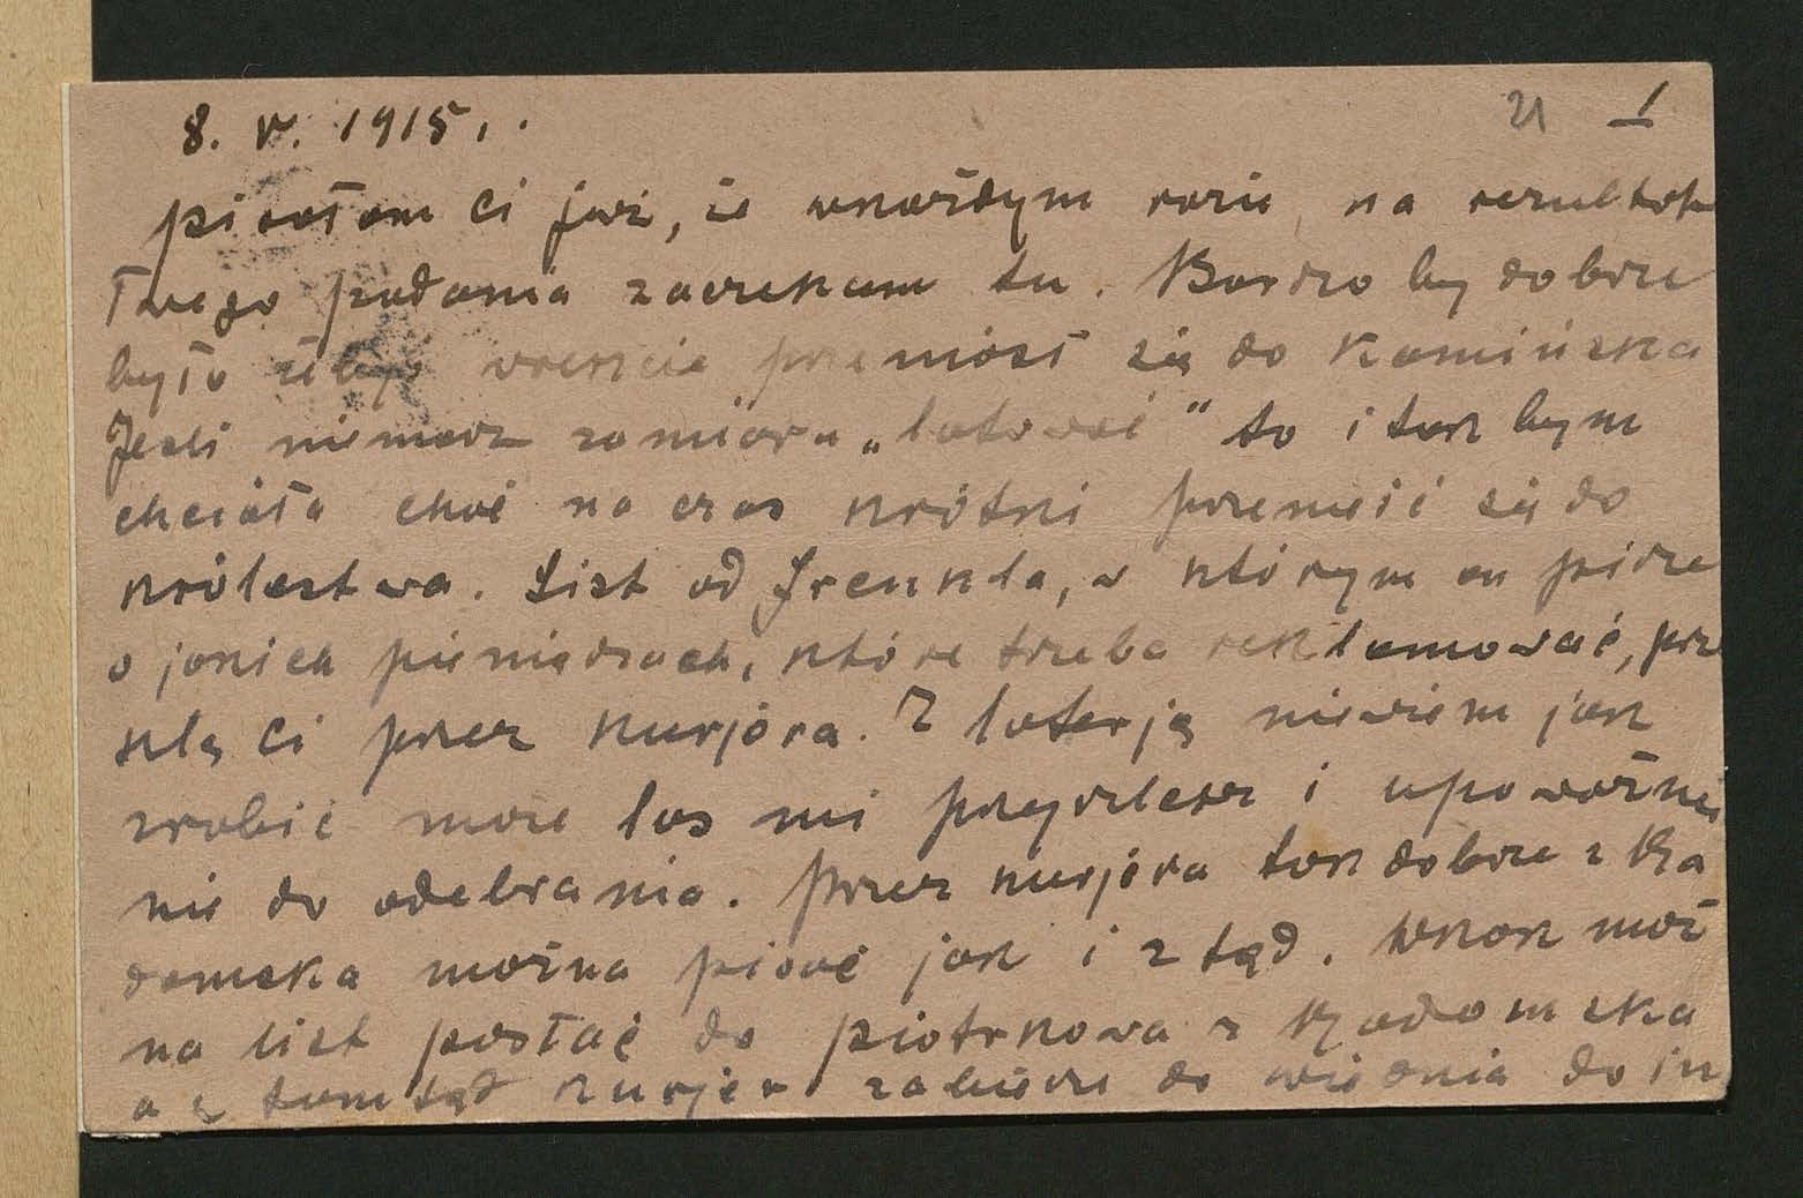 8. V. 1915.
21 1
pisałam ci już, że wkażdym razie na rezultat
Twego podania zaczekam tu. Bardzo by dobrze
było żebyś wreszcie przeniósł się do Kamińska
Jeśli niemasz zamiaru „latować" to i tak bym
chciała choć na czas krótki przenieść się do
królestwa. List od Frenkla, w którym on pisze
o jakich pieniądzach, które trzeba reklamować, prze
szlę ci przez kurjera. Z loterją niewiem jak
zrobić może los mi przyszlesz i upoważnie
nie do odebrania. Przez kurjera tak dobrze z Ra
domska można pisać jak i z tąd. Wszak moż
na list posłać do Piotrkowa z Radomska
a z tamtąd kurjer zabierze do Wiednia do in